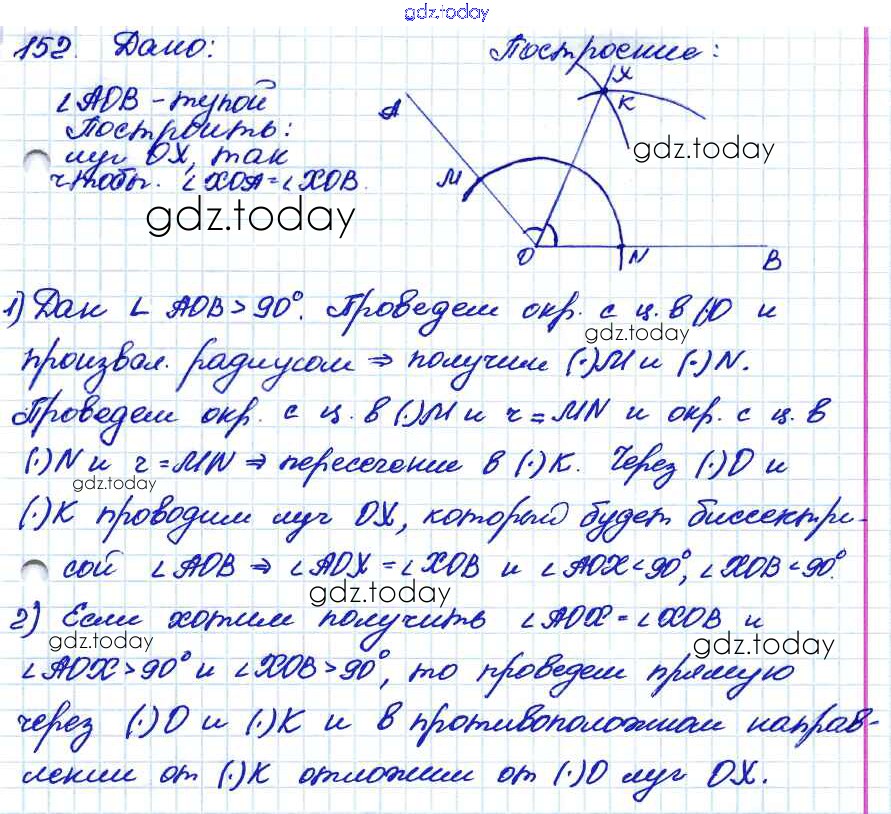 gdz.today
152. Дано:
Построение:
∠AOB - тупой
Построить:
луч OX, так
чтобы. ∠XOA = ∠XOB.
gdz.today
gdz.today
A
X
K
M
O
N
B
1) Дан ∠ AOB > 90°. Проведем окр. с ц. в (·)O и
gdz.today
произвал. радиусом ⇒ получим (·)M и (·)N.
Проведем окр. с ц. в (·)M и r = MN и окр. с ц. в
(·)N и r = MN ⇒ пересечение в (·)K. Через (·)O и
gdz.today
(·)K проводим луч OX, который будет биссектри-
сой ∠AOB ⇒ ∠AOX = ∠XOB и ∠AOX < 90°, ∠XOB < 90°.
gdz.today
2) Если хотим получить ∠AOX = ∠XOB и
gdz.today
gdz.today
∠AOX > 90° и ∠XOB > 90°, то проведем прямую
через (·)O и (·)K и в противоположном направ-
лении от (·)K отложим от (·)O луч OX.